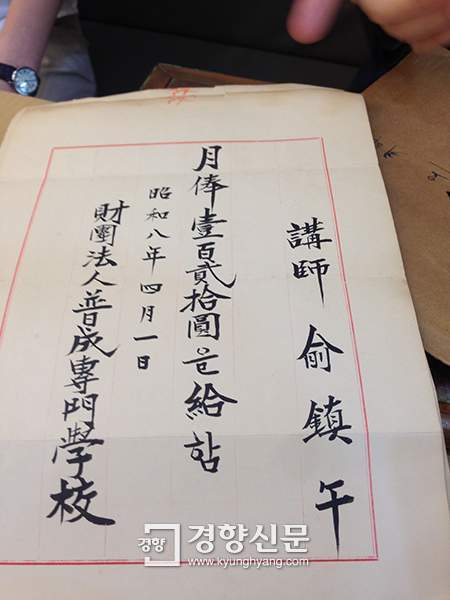 講師 俞鎮午
月俸壹百貳拾圓을給함
昭和八年四月一日
財團法人普成專門學校
경향 경향신문
www.kyunghyang.com